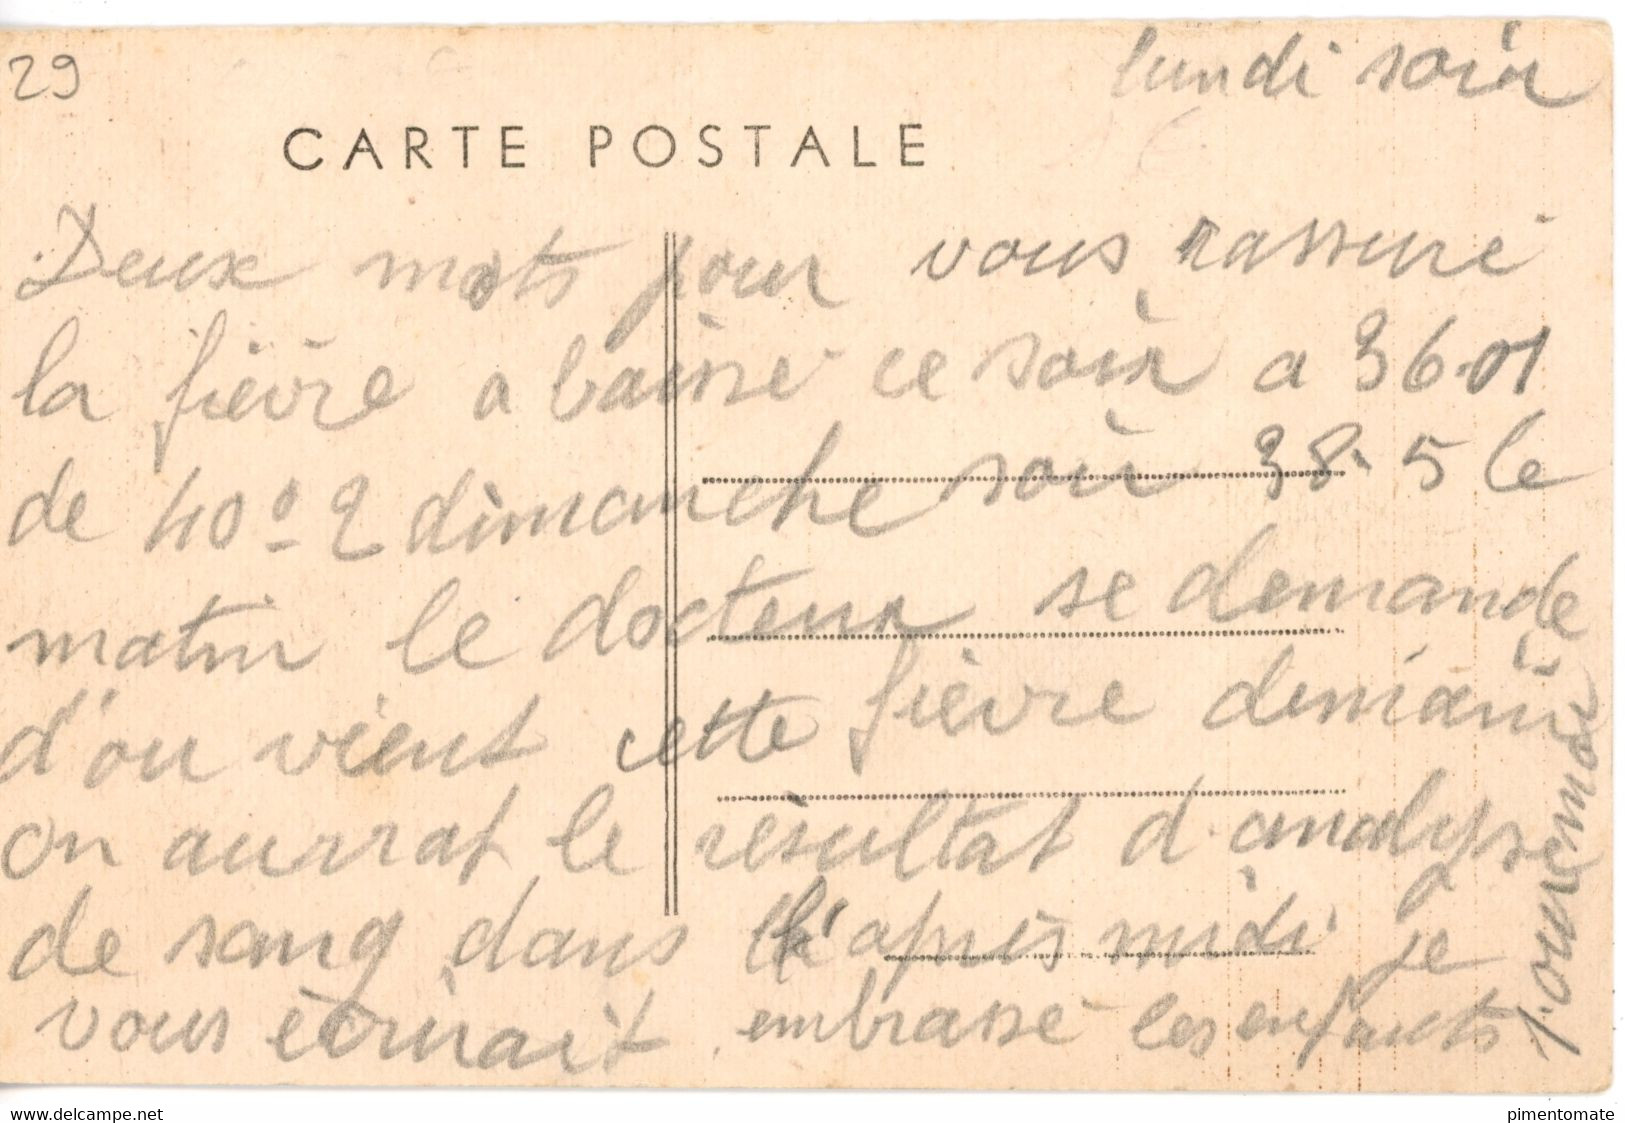 29
lundi soir
CARTE POSTALE
Deux mots pour vous rassuré
la fièvre a baissé ce soir a 36.01
de 40º 2 dimanche soir 38.5 le
matin le docteur se demande
d'ou vient cette fièvre demain
on aurrat le résultat d'analyse
de sang dans l'après midi je
vous écrirait embrassé les enfants
www.delcampe.net
pimentomate